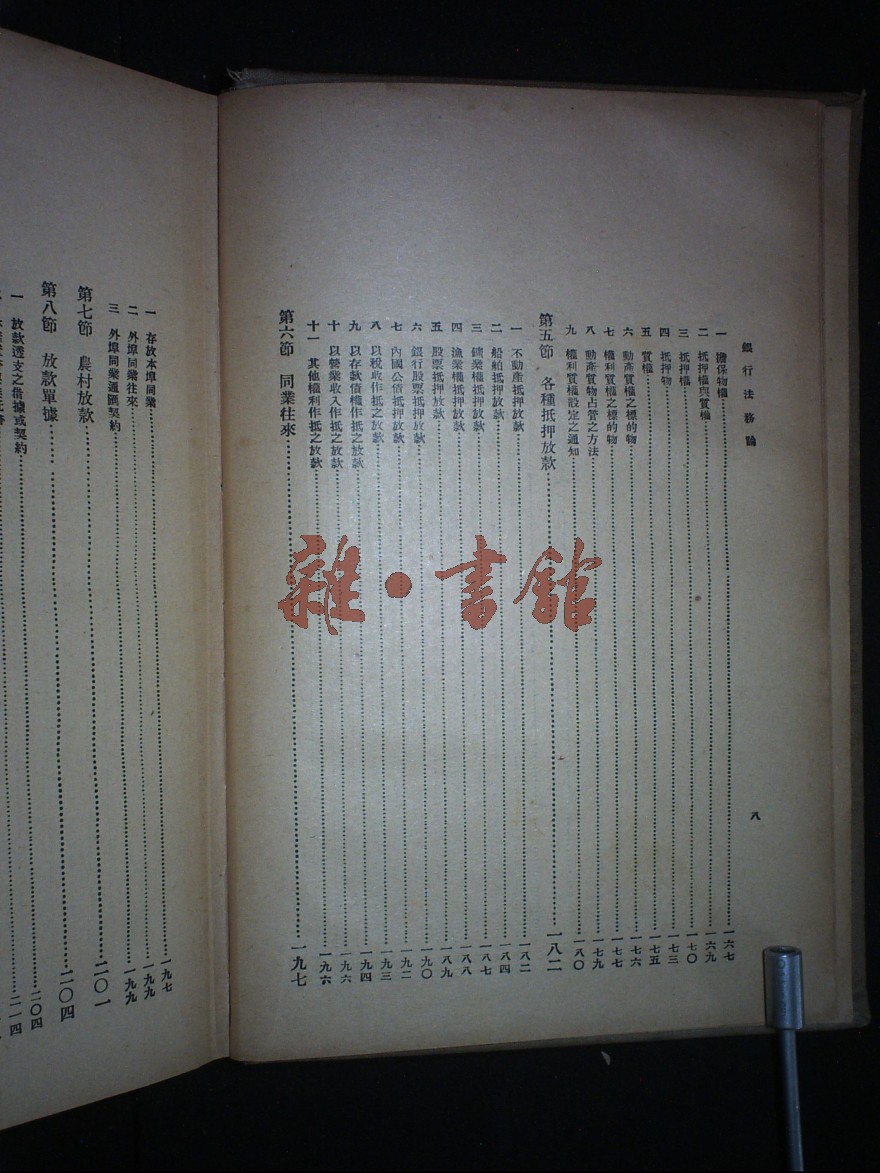 銀行法務論
八
一 擔保物權……一六七
二 抵押權與質權……一六九
三 抵押權……一七〇
四 抵押物……一七三
五 質權……一七五
六 動產質權之標的物……一七六
七 權利質權之標的物……一七七
八 動產質物占管之方法……一七九
九 權利質權設定之通知……一八〇
第五節 各種抵押放款……一八二
一 不動產抵押放款……一八二
二 船舶抵押放款……一八四
三 鑛業權抵押放款……一八七
四 漁業權抵押放款……一八八
五 股票抵押放款……一八九
六 銀行股票抵押放款……一九〇
七 內國公債抵押放款……一九二
八 以稅收作抵之放款……一九三
九 以存款債權作抵之放款……一九四
十 以營業收入作抵之放款……一九六
十一 其他權利作抵之放款……一九六
第六節 同業往來……一九七
一 存放本埠同業……一九七
二 外埠同業往來……一九九
三 外埠同業通匯契約……一九九
第七節 農村放款……二〇一
第八節 放款單據……二〇四
一 放款透支之借據或契約……二〇四
二一四
雜·書館